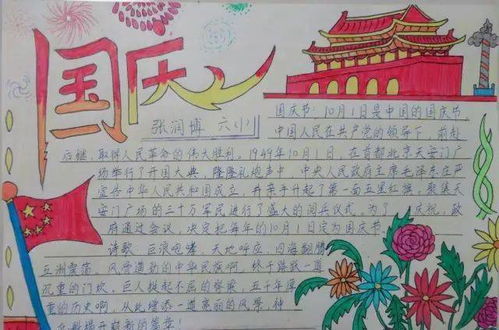 国庆
张润博 六(1)
国庆节:10月1日是中国的国庆节
中国人民在共产党的领导下,前赴
后继,取得人民革命的伟大胜利。1949年10月1日,在首都北京天安门广
场举行了开国大典,隆隆礼炮声中,中央人民政府主席毛泽东在庄严
宣告中华人民共和国成立,并亲手升起了第一面五星红旗,聚集天
安门广场的三十万军民进行了盛大的阅兵仪式,为了庆祝,政
府通过会议,决定把每年的10月1日定为国庆节
诗歌 巨浪咆哮 天地呼应 四海翻腾
五洲震荡 风骨遒新的中华民族啊,终于踏跃一道
沉重的门坎 巨人挨起不屈的脊梁,五千年厚
重的历史啊,从此增添一道亮丽的风景,神